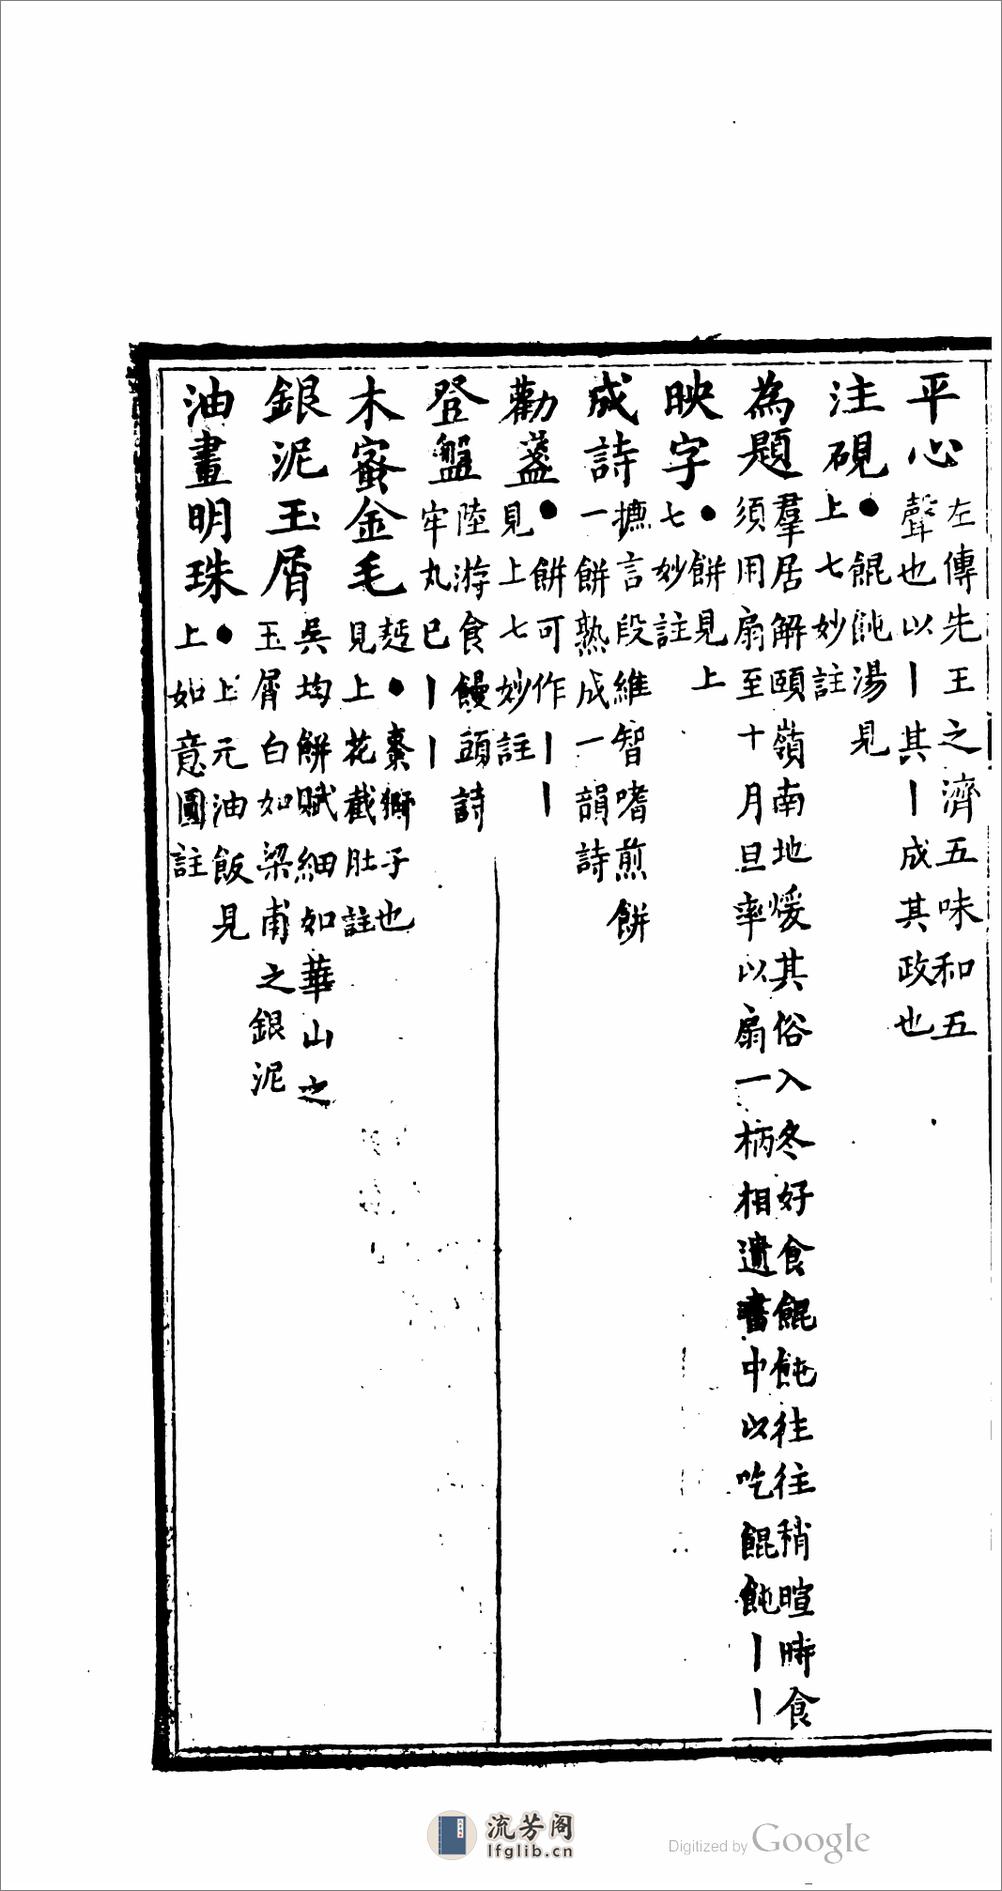 平心左傳先王之濟五味和五
聲也以丨其丨成其政也
注硯●餛飩湯見
上七妙註
為題羣居解頤嶺南地煖其俗入冬好食餛飩往往稍暄時食
須用扇至十月旦率以扇一柄相遺書中以吃餛飩丨丨
映字●餅見上
七妙註
成詩摭言段維智嗜煎餅
一餅熟成一韻詩
勸盞●餅可作丨丨
見上七妙註
登盤陸游食饅頭詩
牢丸已丨丨
木蜜金毛●棗獅子也
見上花截肚註
銀泥玉屑吳均餅賦細如華山之
玉屑白如梁甫之銀泥
油畫明珠●上元油飯見
上如意圓註
流芳阁
lfglib.cn
Digitized by Google